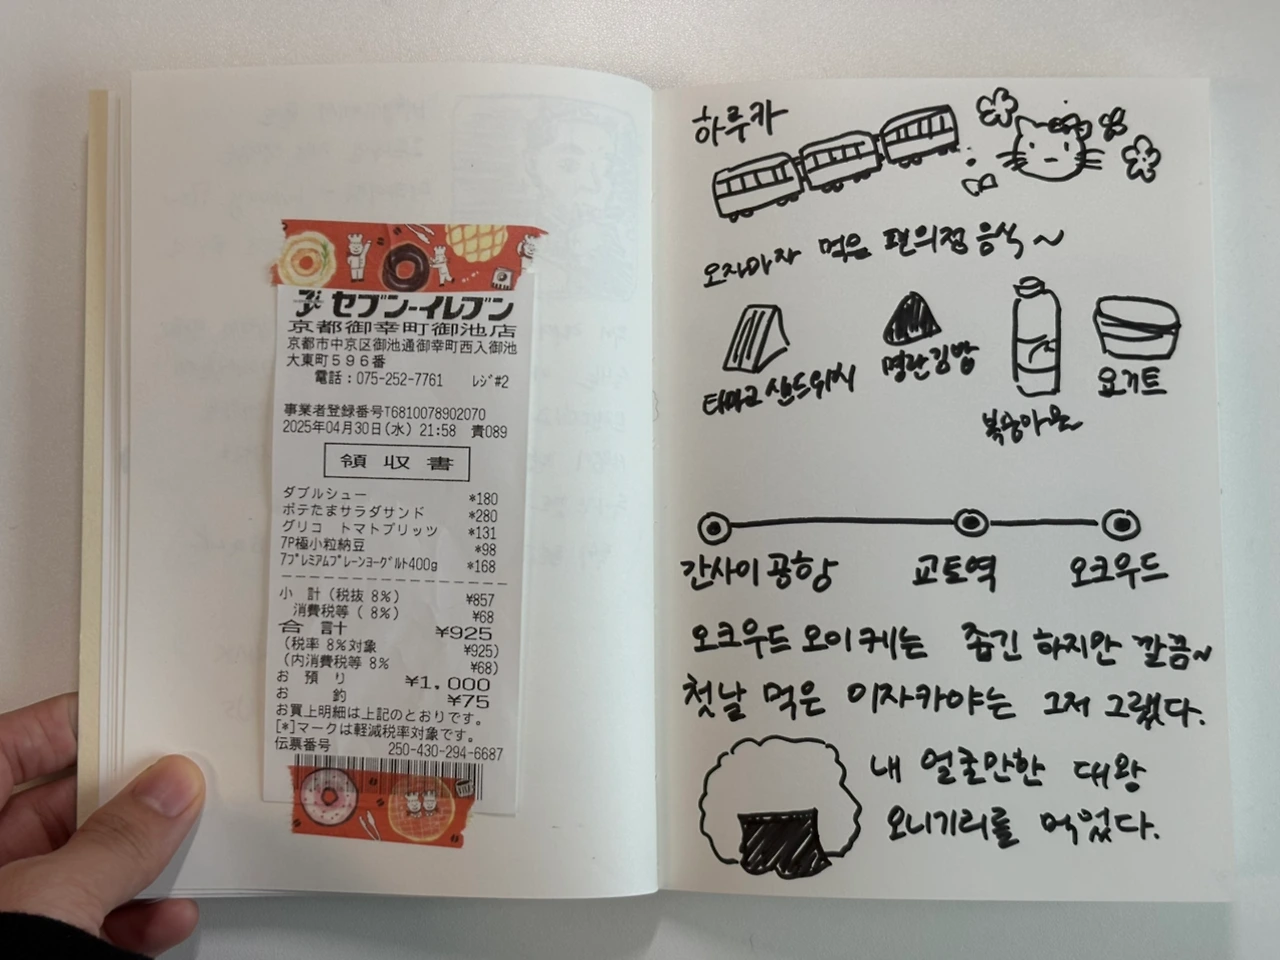 セブン-イレブン
京都御幸町御池店
京都市中京区御池通御幸町西入御池
大東町596番
電話:075-252-7761 レジ#2
事業者登録番号T6810078902070
2025年04月30日(水) 21:58 責089
領収書
ダブルシュー *180
ポテたまサラダサンド *280
グリコ トマトプリッツ *131
7P極小粒納豆 *98
7プレミアムプレーンヨーグルト400g *168
小 計(税抜 8%) ¥857
消費税等( 8%) ¥68
合 計 ¥925
(税率 8%対象 ¥925)
(内消費税等 8% ¥68)
お 預 り ¥1,000
お 釣 ¥75
お買上明細は上記のとおりです。
[*]マークは軽減税率対象です。
伝票番号 250-430-294-6687
하루카
오자마자 먹은 편의점 음식~
타마고 샌드위치
명란김밥
복숭아물
요기트
간사이공항
교토역
오크우드
오크우드 오이케는 좁긴 하지만 깔끔~
첫날 먹은 이자카야는 그저 그랬다.
내 얼굴만한 대왕
오니기리를 먹었다.